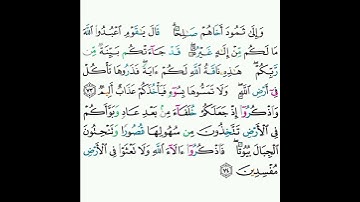 وَإِلَىٰ ثَمُودَ أَخَاهُمْ صَـٰلِحًا ۗ قَالَ يَـٰقَوْمِ ٱعْبُدُوا۟ ٱللَّهَ
مَا لَكُم مِّنْ إِلَـٰهٍ غَيْرُهُۥ ۖ قَدْ جَآءَتْكُم بَيِّنَةٌ مِّن
رَّبِّكُمْ ۖ هَـٰذِهِۦ نَاقَةُ ٱللَّهِ لَكُمْ ءَايَةً ۖ فَذَرُوهَا تَأْكُلْ
فِىٓ أَرْضِ ٱللَّهِ ۖ وَلَا تَمَسُّوهَا بِسُوٓءٍ فَيَأْخُذَكُمْ عَذَابٌ أَلِيمٌ ٧٣
وَٱذْكُرُوٓا۟ إِذْ جَعَلَكُمْ خُلَفَآءَ مِنۢ بَعْدِ عَادٍ وَبَوَّأَكُمْ
فِى ٱلْأَرْضِ تَتَّخِذُونَ مِن سُهُولِهَا قُصُورًا وَتَنْحِتُونَ
ٱلْجِبَالَ بُيُوتًا ۖ فَٱذْكُرُوٓا۟ ءَالَآءَ ٱللَّهِ وَلَا تَعْثَوْا۟ فِى ٱلْأَرْضِ
مُفْسِدِينَ ٧٤